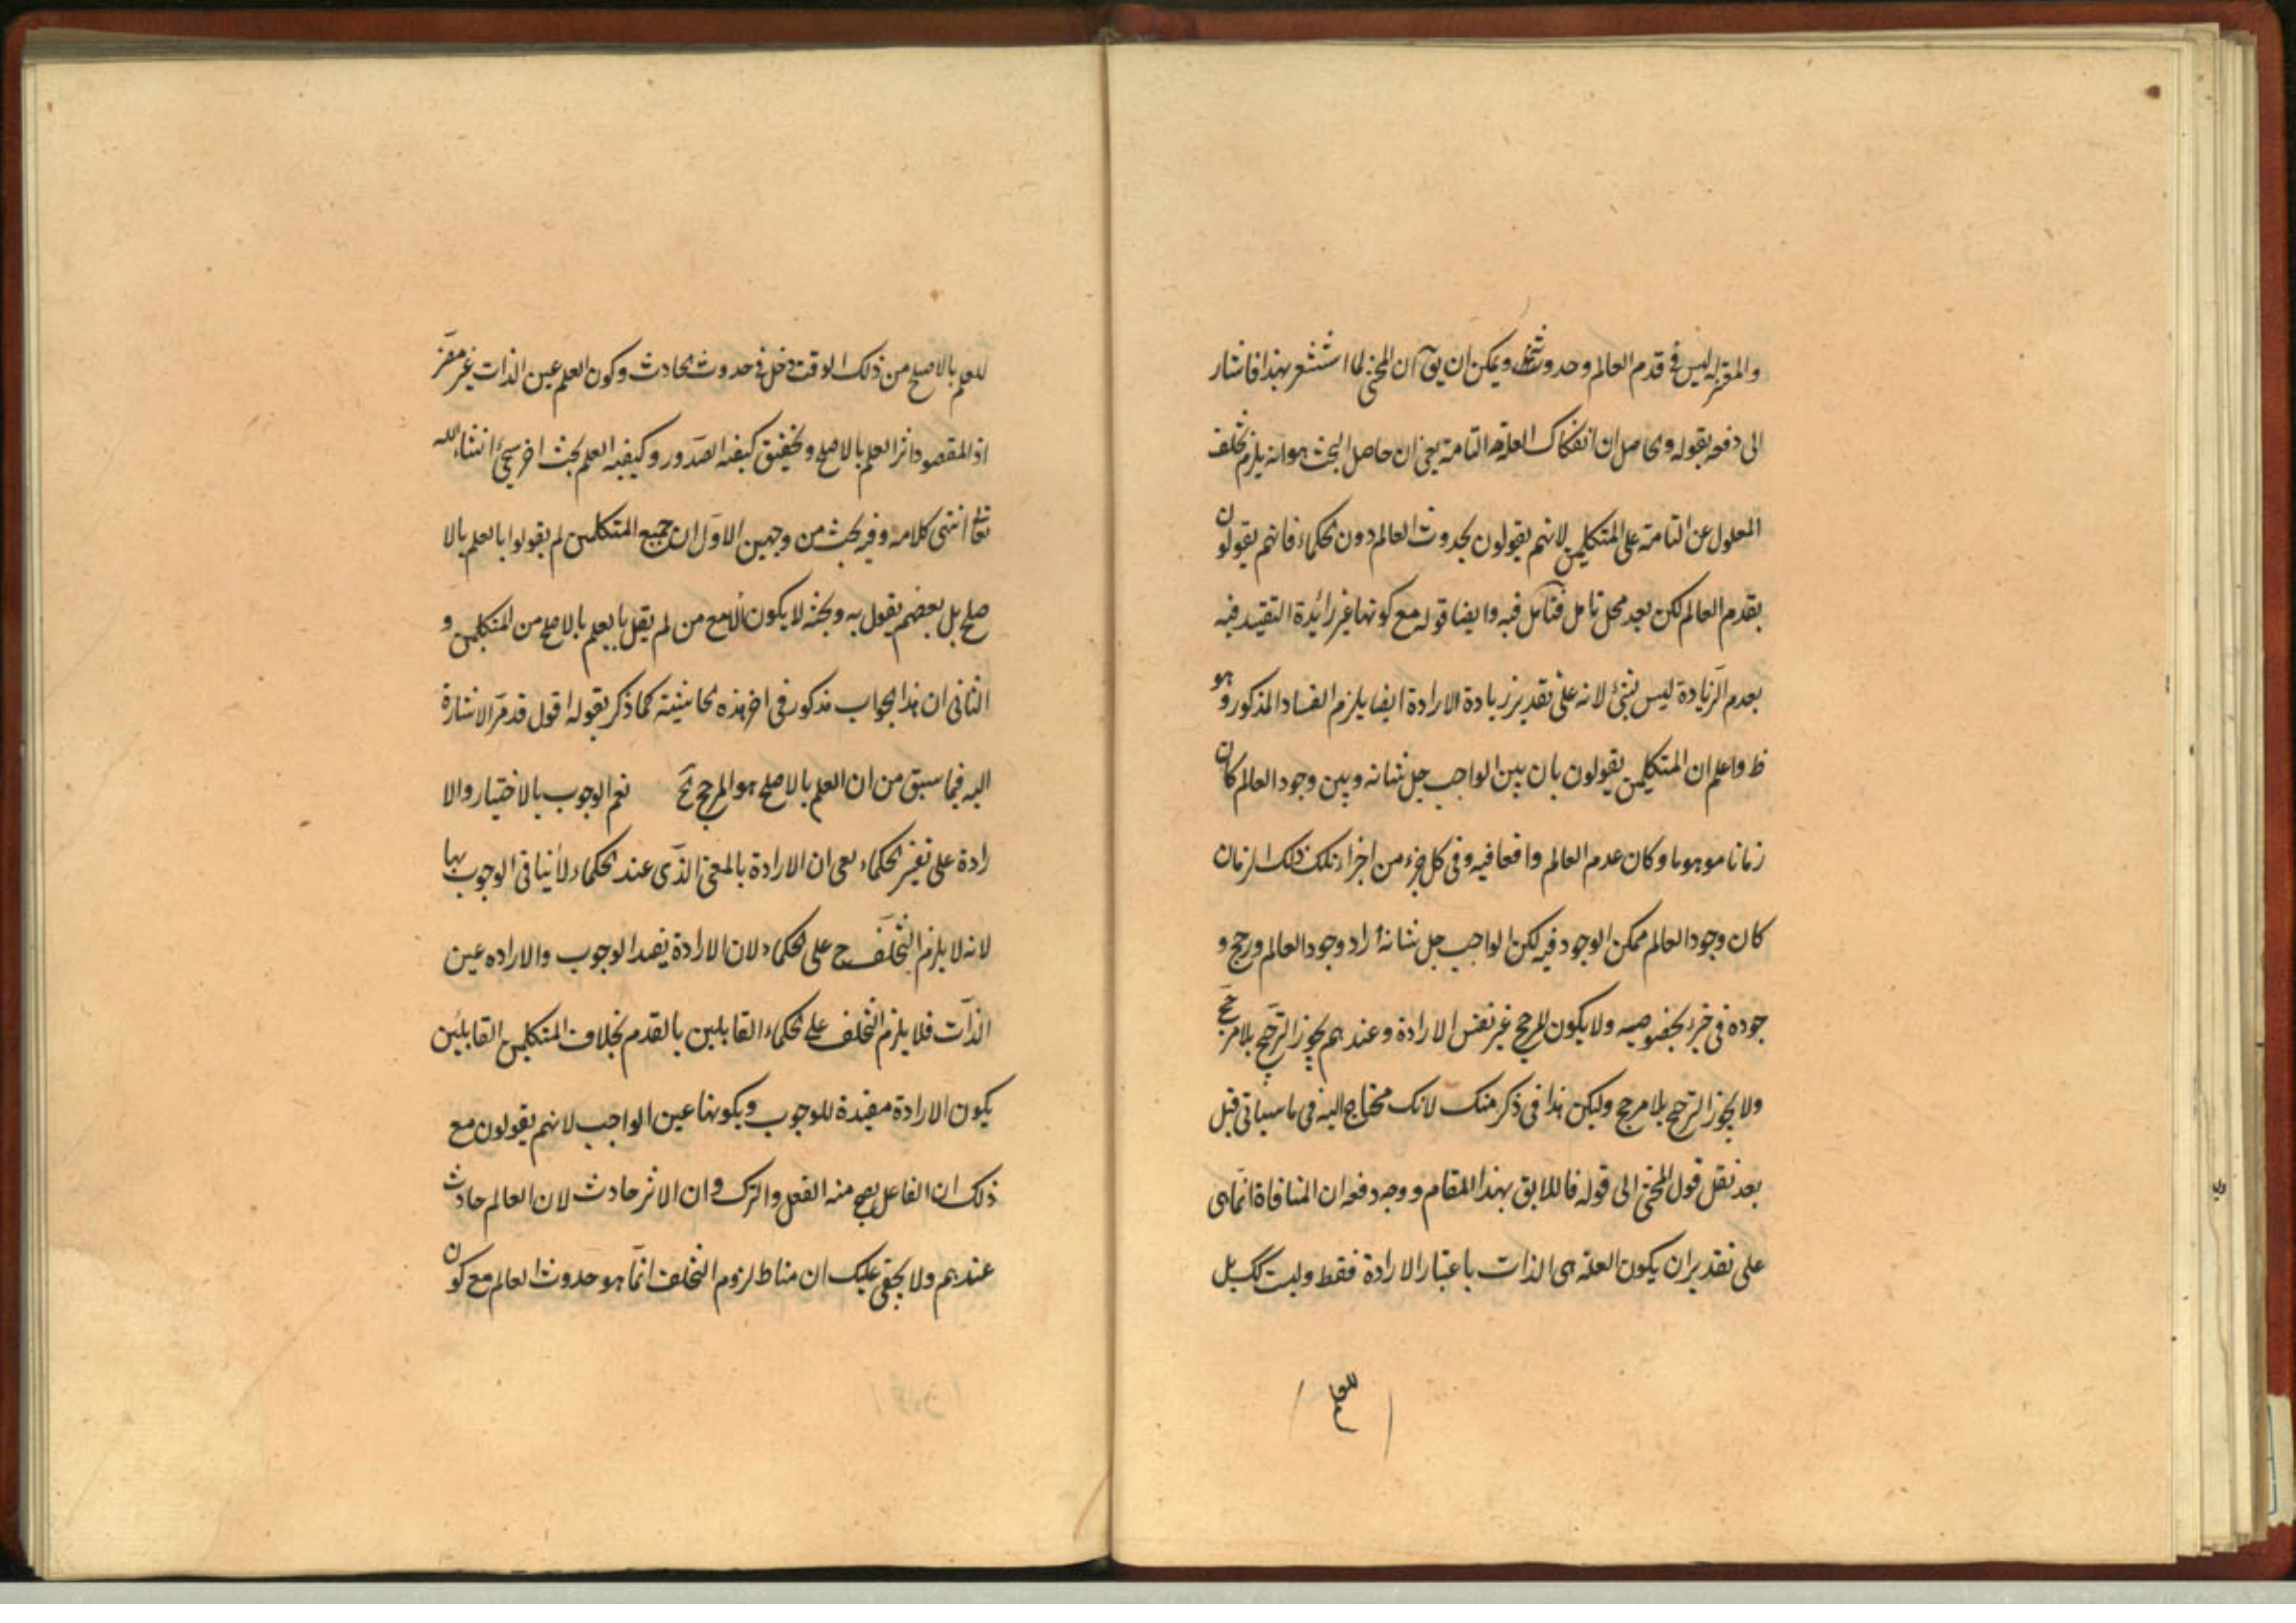 والمعتزله ليس في قدم العالم وحدوثه ويمكن ان يق ان المحشى لما استشعر بهذا فاشار
الى دفعه بقوله وحاصل ان انفكاك العلة التامة يعنى ان حاصل البحث هو انه يلزم تخلف
المعلول عن التامة على المتكلمين لانهم يقولون بحدوث العالم دون الحكماء فانهم يقولون
بقدم العالم لكن بعد محل تامل فتامل فيه وايضا قوله مع كونها غير زائدة التقييد فيه
بعدم الزيادة ليس بشئ لانه على تقدير زيادة الارادة ايضا يلزم الفساد المذكور وهو
ظ واعلم ان المتكلمين يقولون بان بين الواجب جل شانه وبين وجود العالم كان
زمانا موهوما وكان عدم العالم واقعا فيه وفى كل جزء من اجزاء ذلك الزمان
كان وجود العالم ممكن الوجود فيه لكن الواجب جل شانه اراد وجود العالم ورجح و
جوده فى جزء بخصوصه ولا يكون المرجح غير نفس الارادة وعندهم يجوز الترجيح بلا مرجح
ولا يجوز الترجح بلا مرجح وليكن هذا فى ذكر منك لانك محتاج اليه فى ما سياتى قبل
بعد نقل قول المحشى الى قوله فاللايق بهذا المقام ووجه دفعه ان المنافاة انما هى
على تقدير ان يكون العلة هى الذات باعتبار الارادة فقط وليت كك بل
للعلم
للعلم بالاصلح من ذلك الوقت دخل فى حدوث الحادث وكون العلم عين الذات غير مضر
اذ المقصود اثر العلم بالاصلح وتحقيق كيفية الصدور وكيفية العلم بحث اخر سيجئ انشاء الله
تعالى انتهى كلامه وفيه بحث من وجهين الاول ان جميع المتكلمين لم يقولوا بالعلم بالا
صلح بل بعضهم يقول به وبحثه لا يكون الا مع من لم يقل بالعلم بالاصلح من المتكلمين و
الثانى ان هذا الجواب مذكور فى اخر هذه الحاشية كما ذكر بقوله اقول قد مر الاشارة
اليه فيما سبق من ان العلم بالاصلح هو المرجح نعم الوجوب بالاختيار والا
رادة على تفسير الحكماء يعى ان الارادة بالمعنى الذى عند الحكماء لا ينافى الوجوب بها
لانه لا يلزم التخلف ح على الحكماء لان الارادة يفيد الوجوب والاراده عين
الذات فلا يلزم التخلف على الحكماء القايلين بالقدم بخلاف المتكلمين القايلين
بكون الارادة مفيدة للوجوب وبكونها عين الواجب لانهم يقولون مع
ذلك ان الفاعل يصح منه الفعل والترك وان الاثر حادث لان العالم حادث
عندهم ولا يخفى عليك ان مناط لزوم التخلف انما هو حدوث العالم مع كون